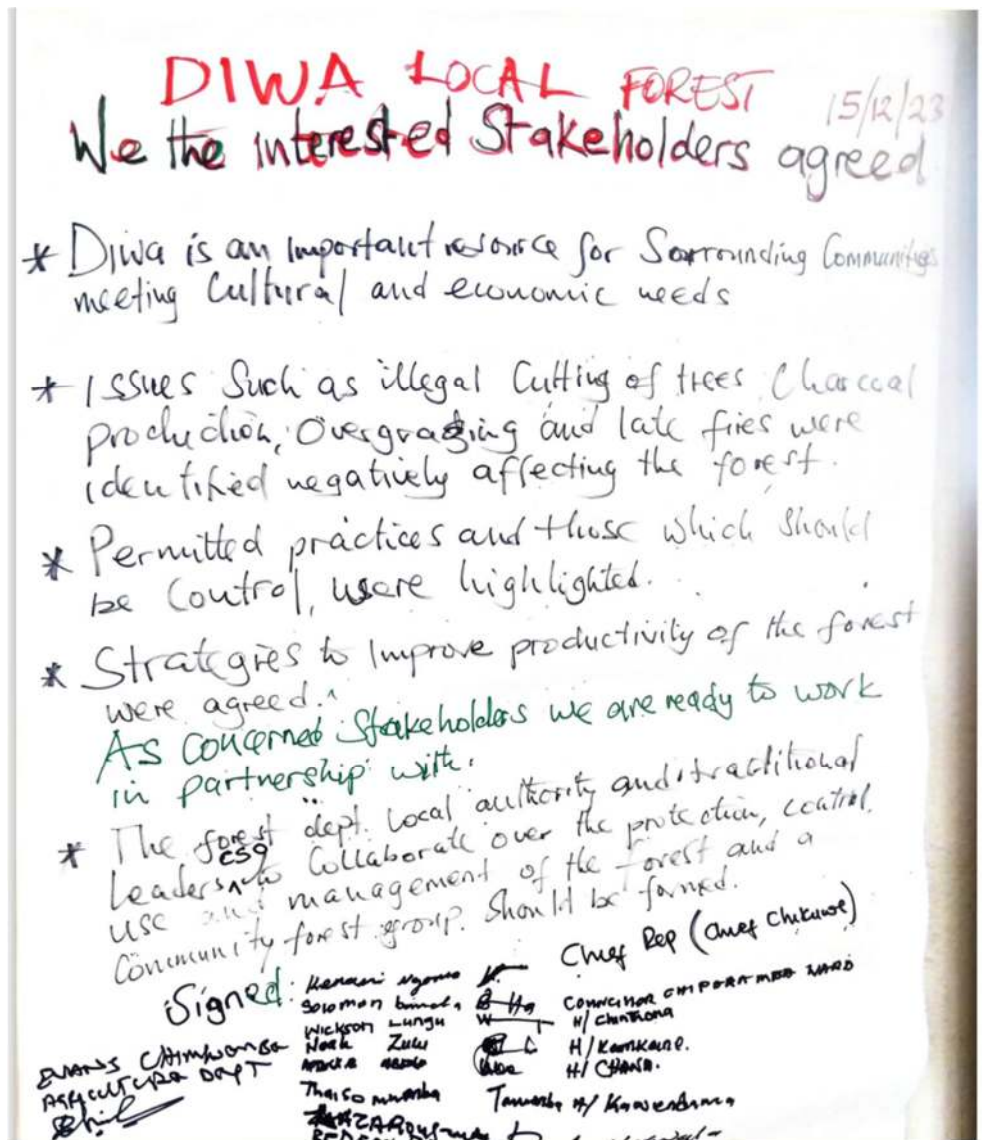 DIWA LOCAL FOREST
15/12/23
We the interested Stakeholders agreed
* Diwa is an important resource for Sorrounding Communities
meeting Cultural and economic needs
* Issues Such as illegal Cutting of trees, Charcoal
production, Overgrazing and late fires were
identified negatively affecting the forest.
* Permitted practices and those which should
be Control, were highlighted.
* Strategies to Improve productivity of the forest
were agreed.
As Concerned Stakeholders we are ready to work
in partnership with.
* The forest dept. Local authority and traditional
Leaders CSO to Collaborate over the protection, control,
use and management of the forest and a
Community forest group. Should be formed.
Chief Rep (Chief Chikuwe)
Signed:
Solomon
COUNCILLOR WARD
Wickson Lungu H/
Noah Zulu H/
H/
EVANS
AGRICULTURE DEPT
H/